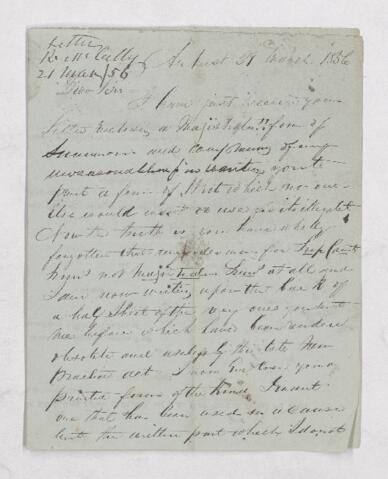 Letter
R. McCully
21 Mar/56
Amherst 21 March 1856
Dear Sir
I have just received your
letter enclosing a Magistrates form of
Summons and complaining of my
unreasonableness in wanting you to
print a form of Writ which no one
else would want or use
Now the truth is you have wholly
forgotten that my order was for Sup Court
not Magistrates Sums at all and
I am now writing upon the back of
a half Sheet of the very ones you sent
me before which have been rendered
obsolete and useless by the late New
Practice act I now Enclose you a
printed form of the kind I want
one that has been used in a cause
but the written part which I do not